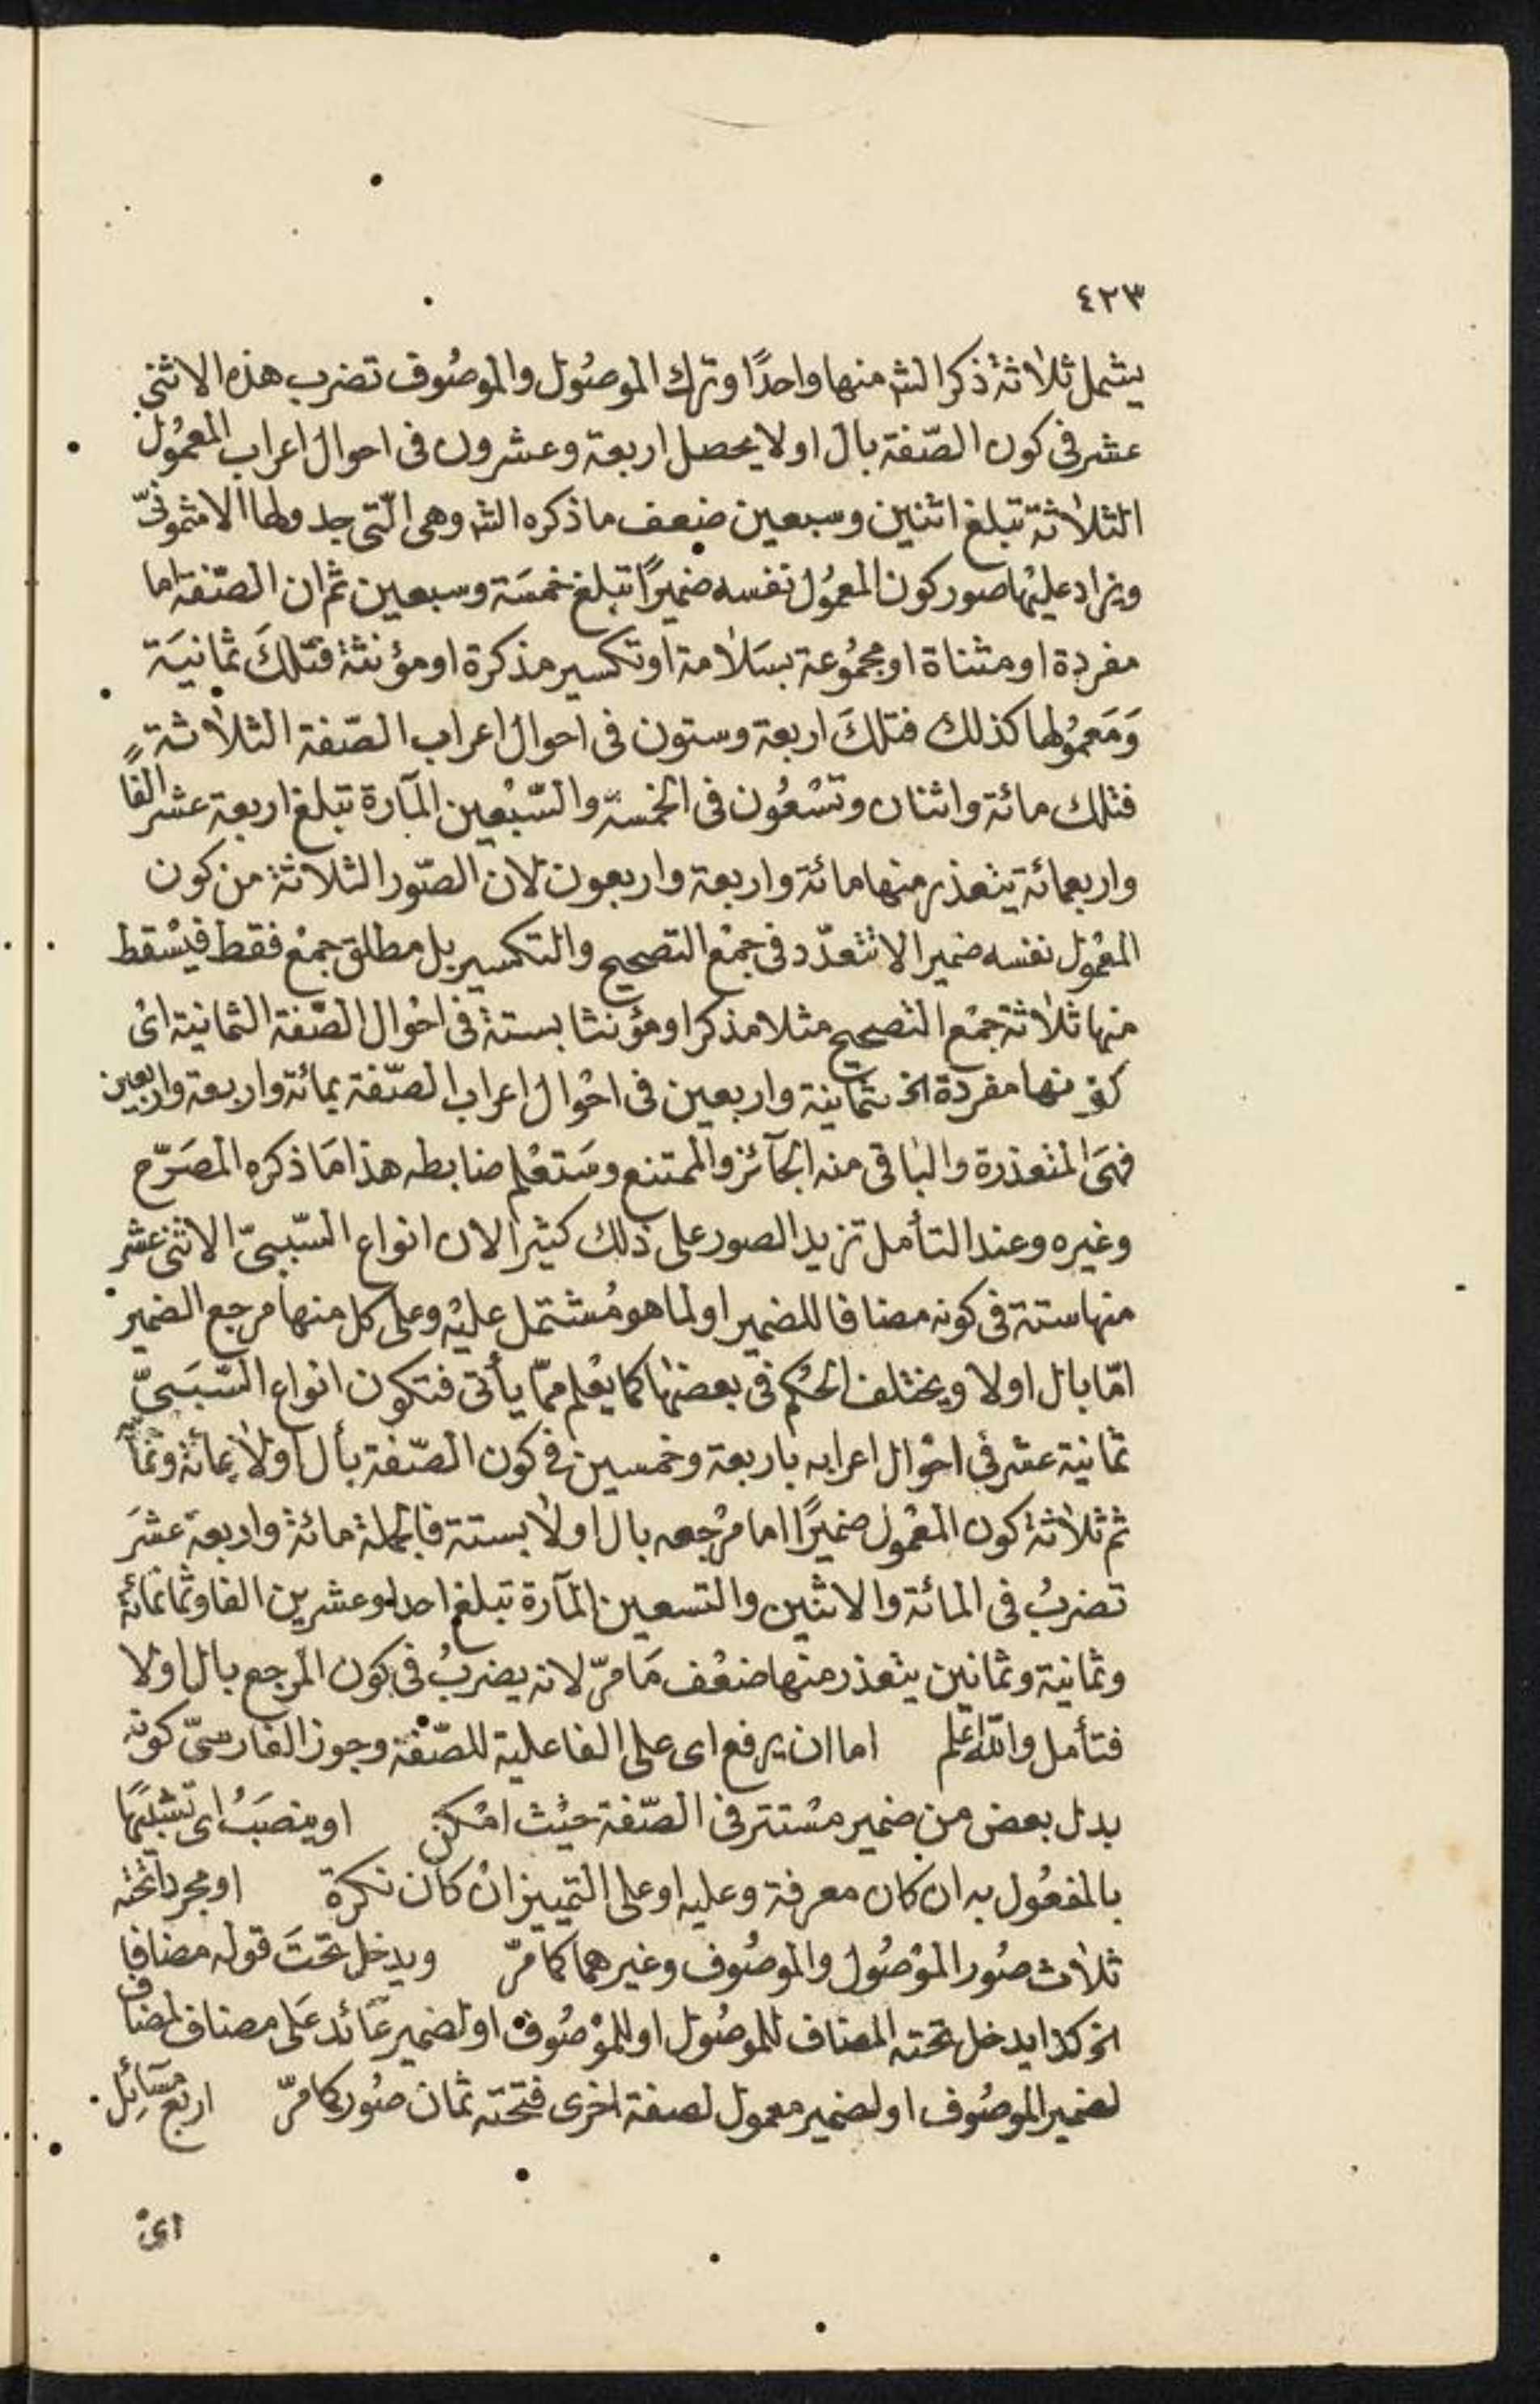 ٤٢٣
يشمل ثلاثة ذكر الش منها واحدًا وترك الموصُول والموصُوف تضرب هذه الاثنى
عشر فى كون الصّفة بال اولا يحصل اربعة وعشرون فى احوال اعراب المعمُول
الثلاثة تبلغ اثنين وسبعين ضعف ما ذكره الش وهى الّتى جدولها الاشمونىّ
ويزاد عليْها صور كون المعمُول نفسه ضميرًا تبلغ خمسَة وسبعين ثم ان الصّفة اما
مفردة او مثناة او مجمُوعة بسَلامة او تكسير مذكرة او مؤنثة فتلكَ ثمانيَة
وَمَعمُولها كذلك فتلكَ اربعة وستون فى احوال اعراب الصّفة الثلاثة
فتلك مائة واثنان وتسْعُون فى الخمسة والسّبْعين المآرة تبلغ اربعة عشر الفًا
واربعمائة يتعذر منها مائة واربعة واربعون لان الصّور الثلاثة من كون
المعْمول نفسه ضميرا لا تتعدّد فى جمْع التصحيح والتكسير بل مطلق جمْع فقط فيسْقط
منها ثلاثة جمْع التصحيح مثلا مذكرا ومؤنثا بستة فى احْوال الصّفة الثمانية اىْ
كونها مفردة الخ بثمانية واربعين فى احْوال اعراب الصّفة بمائة واربعة واربعين
فهىَ المتعذرة والباقى منه الجآئز والممتنع وسَتعْلم ضابطه هذا مَا ذكره المصَرّح
وغيره وعند التأمل تزيد الصور على ذلك كثيرا لان انواع السّببىّ الاثنى عشر
منها ستة فى كونه مضافا للضمير او لما هو مُشتمل عليْه وعلى كل منها مرجع الضمير
امّا بال اولا ويختلف الحُكم فى بعضها كما يعْلم ممّا يأتى فتكون انواع السّببَىّ
ثمانية عشر فى احْوال اعرابه باربعة وخمسين فى كون الصّفة بأل اولا بمائة وثما
ثم ثلاثة كون المعْمول ضميرًا اما مرْجعه بال اولا بستة فالجملة مائة واربعة عشرَ
تضربُ فى المائة والاثنين والتسعين المآرة تبلغ احدا وعشرين الفا وثمانمائة
وثمانية وثمانين يتعذر منها ضعْف مَا مرّ لانه يضربُ فى كون المرجع بال اولا
فتأمل والله اعلم اما ان يرفع اى على الفاعلية للصّفة وجوز الفارسىّ كونه
بدل بعض من ضمير مسْتتر فى الصّفة حيْث امْكن او ينصَبُ اى تشبيهًا
بالمفعُول به ان كان معرفة وعليه او على التمييز انْ كان نكرة او مجرد اتحته
ثلاث صُور الموْصُول والموصُوف وغيرهما كما مرّ ويدخل تحْتَ قوله مضافا
الخ كذا يدخل تحته المضاف للموصُول او للموْصُوف او لضمير عَائد عَلى مضاف لمضاف
لضمير الموصُوف او لضمير معمول لصفة اخرى فتحته ثمان صُور كما مرّ اربع مسَائِل
اىْ